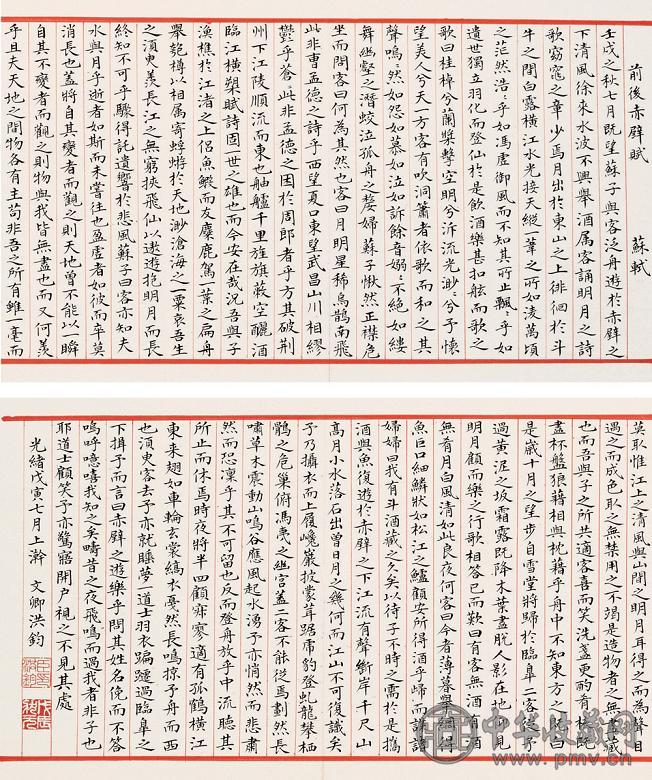 前後赤壁賦 蘇軾
壬戌之秋七月既望蘇子與客泛舟遊於赤壁之
下清風徐來水波不興舉酒属客誦明月之詩
歌窈窕之章少焉月出於東山之上徘徊於斗
牛之間白露橫江水光接天縱一葦之所如淩萬頃
之茫然浩〻乎如馮虛御風而不知其所止飄〻乎如
遺世獨立羽化而登仙於是飲酒樂甚扣舷而歌之
歌曰桂棹兮蘭槳擊空明兮泝流光渺〻兮予懷
望美人兮天一方客有吹洞簫者依歌而和之其
聲嗚〻然如怨如慕如泣如訴餘音嫋〻不絕如縷
舞幽壑之潛蛟泣孤舟之嫠婦蘇子愀然正襟危
坐而問客曰何為其然也客曰月明星稀烏鵲南飛
此非曹孟德之詩乎西望夏口東望武昌山川相繆
鬱乎蒼〻此非孟德之困於周郎者乎方其破荆
州下江陵順流而東也舳艫千里旌旗蔽空釃酒
臨江橫槊賦詩固一世之雄也而今安在哉況吾與子
漁樵於江渚之上侣魚鰕而友麋鹿駕一葉之扁舟
舉匏樽以相属寄蜉蝣於天地渺滄海之一粟哀吾生
之須臾羨長江之無窮挾飛仙以遨遊抱明月而長
終知不可乎驟得託遺響於悲風蘇子曰客亦知夫
水與月乎逝者如斯而未嘗往也盈虛者如彼而卒莫
消長也蓋將自其變者而觀之則天地曾不能以瞬
自其不變者而觀之則物與我皆無盡也而又何羨
乎且夫天地之間物各有主苟非吾之所有雖一毫而
莫取惟江上之清風與山間之明月耳得之而為聲目
遇之而成色取之無禁用之不竭是造物者之無盡藏
也而吾與子之所共適客喜而笑洗盞更酌肴核既
盡杯盤狼藉相與枕藉乎舟中不知東方之既白
是歲十月之望步自雪堂將歸於臨皋二客從予
過黃泥之坂霜露既降木葉盡脫人影在地仰見
明月顧而樂之行歌相答已而歎曰有客無酒有酒
無肴月白風清如此良夜何客曰今者薄暮舉網得
魚巨口細鱗狀如松江之鱸顧安所得酒乎歸而謀諸
婦婦曰我有斗酒藏之久矣以待子不時之需於是攜
酒與魚復遊於赤壁之下江流有聲斷岸千尺山
高月小水落石出曾日月之幾何而江山不可復識矣
予乃攝衣而上履巉巖披蒙茸踞虎豹登虬龍攀栖
鶻之危巢俯馮夷之幽宫蓋二客不能從焉劃然長
嘯草木震動山鳴谷應風起水湧予亦悄然而悲肅
然而恐凜乎其不可留也反而登舟放乎中流聽其
所止而休焉時夜將半四顧寂寥適有孤鶴橫江
東來翅如車輪玄裳縞衣戛然長鳴掠予舟而西
也須臾客去予亦就睡夢一道士羽衣蹁躚過臨皋之
下揖予而言曰赤壁之遊樂乎問其姓名俛而不答
嗚呼噫嘻我知之矣疇昔之夜飛鳴而過我者非子也
耶道士顧笑予亦驚寤開户視之不見其處
光緒戊寅七月上澣 文卿洪鈞
中华收藏网
www.pmv.cn